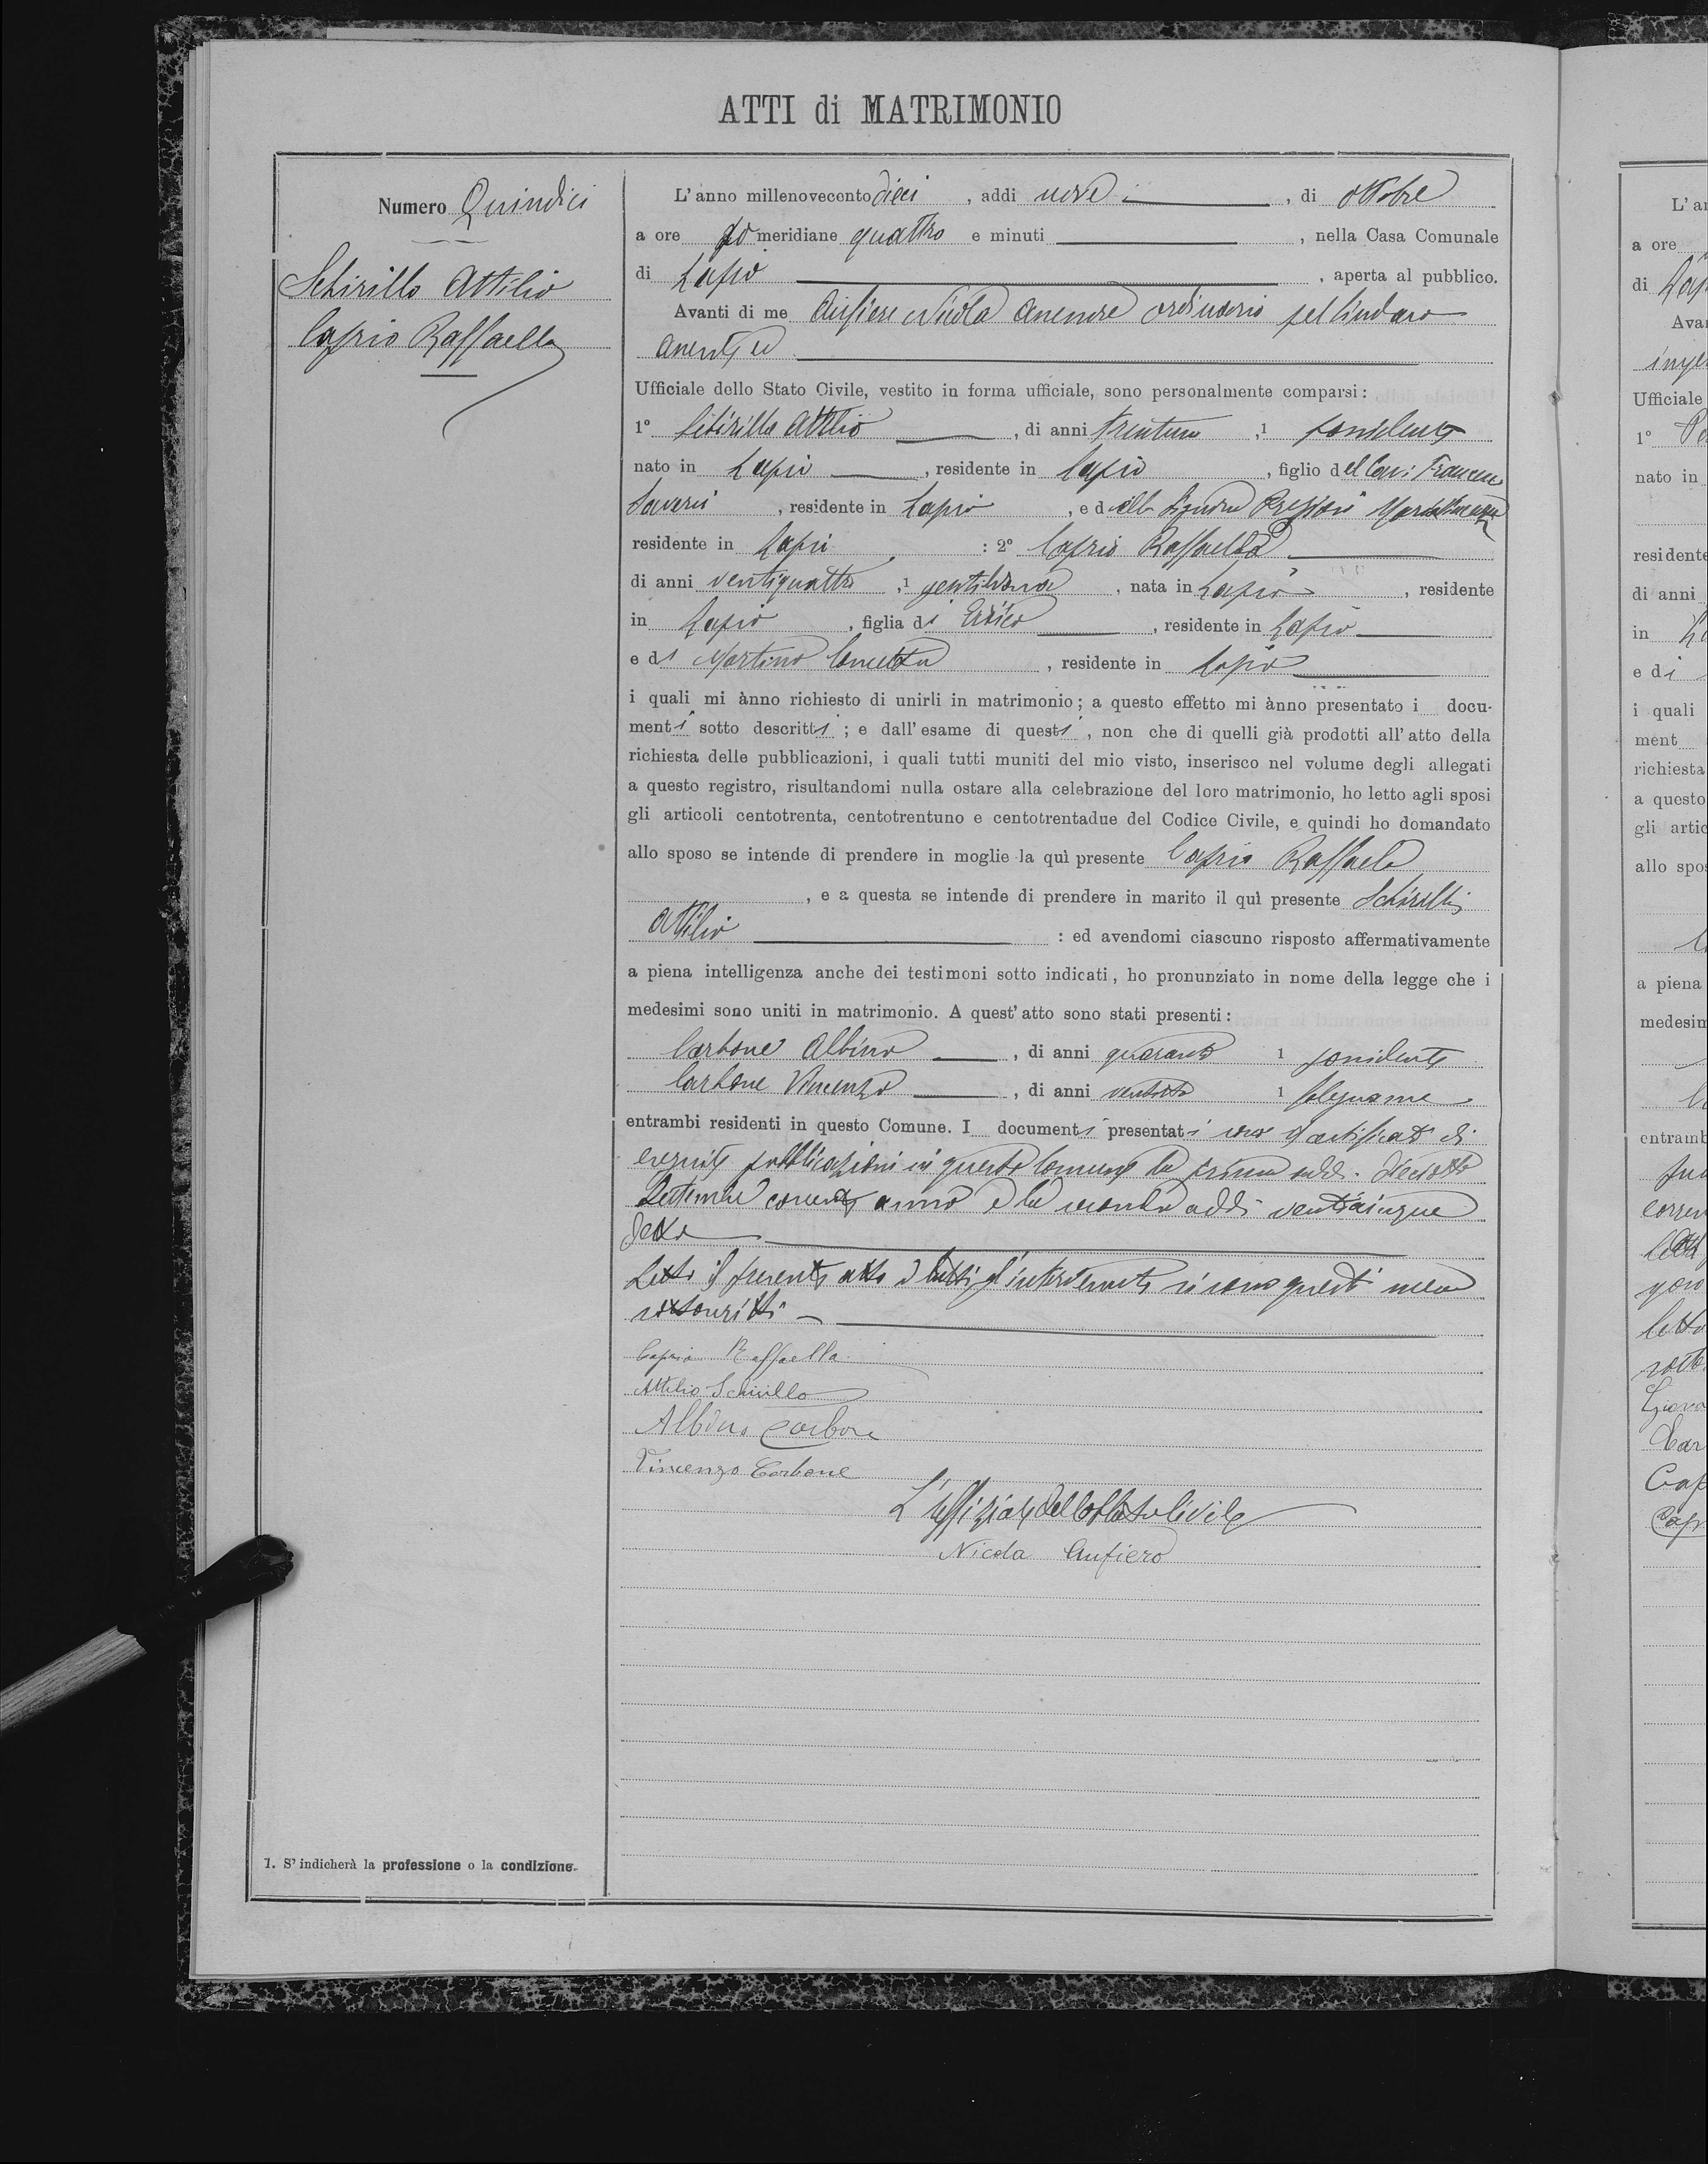 ATTI di MATRIMONIO
Numero Quindici
Schirillo Attilio
Caprio Raffaella
1. S' indicherà la professione o la condizione.
L' anno millenovecento dieci , addi nove , di ottobre
a ore po meridiane quattro e minuti , nella Casa Comunale
di Lapio , aperta al pubblico.
Avanti di me Aufiero Nicola ordinario pel Sindaco
assente
Ufficiale dello Stato Civile, vestito in forma ufficiale, sono personalmente comparsi:
1° Schirillo Attilio , di anni trentuno ,1 possidente
nato in Lapio , residente in Lapio , figlio del Cav: Francesco
Saverio , residente in Lapio , e della
residente in Lapio : 2° Caprio Raffaella
di anni ventiquattro ,1 gentildonna , nata in Lapio , residente
in Lapio , figlia di Errico , residente in Lapio
e di Martino Concetta , residente in Lapio
i quali mi ànno richiesto di unirli in matrimonio; a questo effetto mi ànno presentato i docu-
menti sotto descritti ; e dall' esame di questi , non che di quelli già prodotti all' atto della
richiesta delle pubblicazioni, i quali tutti muniti del mio visto, inserisco nel volume degli allegati
a questo registro, risultandomi nulla ostare alla celebrazione del loro matrimonio, ho letto agli sposi
gli articoli centotrenta, centotrentuno e centotrentadue del Codice Civile, e quindi ho domandato
allo sposo se intende di prendere in moglie la quì presente Caprio Raffaela
, e a questa se intende di prendere in marito il quì presente Schirillo
Attilio : ed avendomi ciascuno risposto affermativamente
a piena intelligenza anche dei testimoni sotto indicati, ho pronunziato in nome della legge che i
medesimi sono uniti in matrimonio. A quest' atto sono stati presenti:
Carbone Albino , di anni quaranta 1 possidente
Carbone Vincenzo , di anni ventotto 1 falegname
entrambi residenti in questo Comune. I documenti presentati sono il certificato di
eseguite pubblicazioni in questo Comune la prima addi diciotto
Settembre corrente anno e la seconda addi venticinque
detto
Letto il presente atto a tutti gl'intervenuti si sono questi meco
sottoscritti
Caprio Raffaella
Attilio Schirillo
Albino Carbone
Vincenzo Carbone
L'Uffiziale dello Stato Civile
Nicola Aufiero